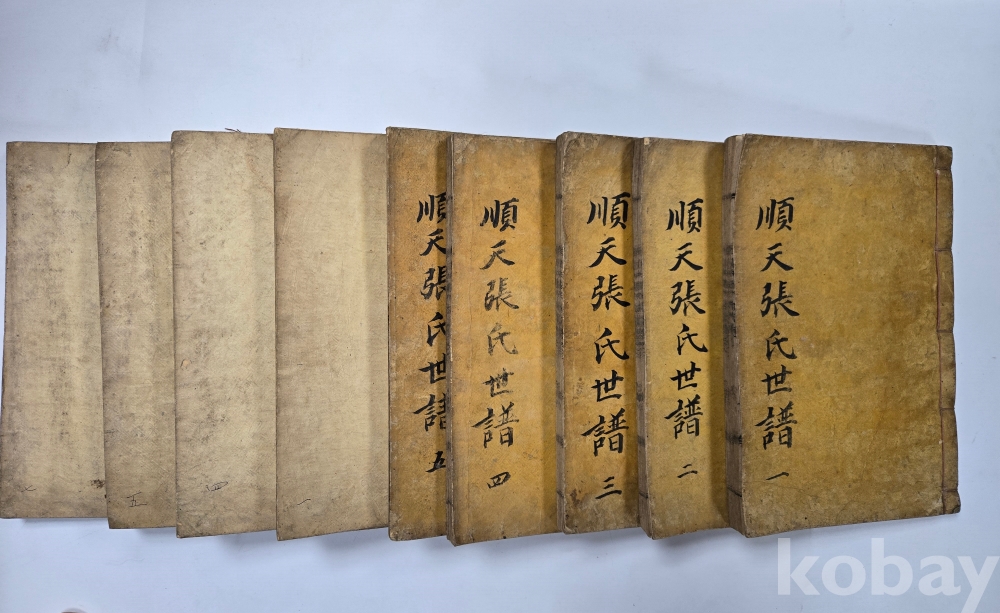 順天張氏世譜 一
順天張氏世譜 二
順天張氏世譜 三
順天張氏世譜 四
順天張氏世譜 五
一
四
五
kobay